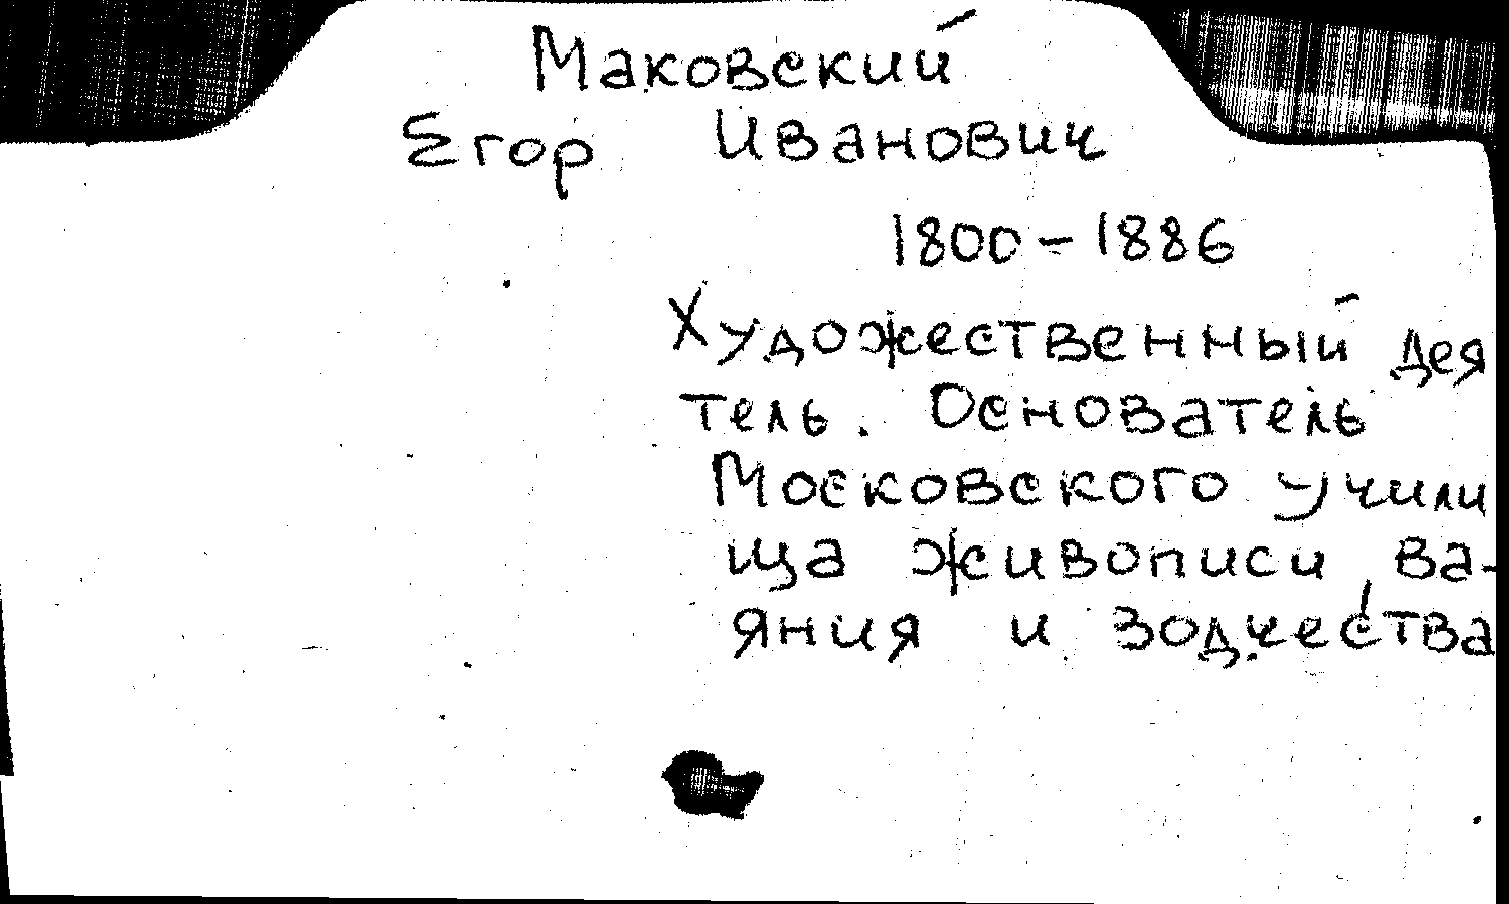 Маковский
Егор Иванович
1800-1886
Художественный дея
тель. Основатель
Московского учили
ща живописи, ва-
яния и зодчества